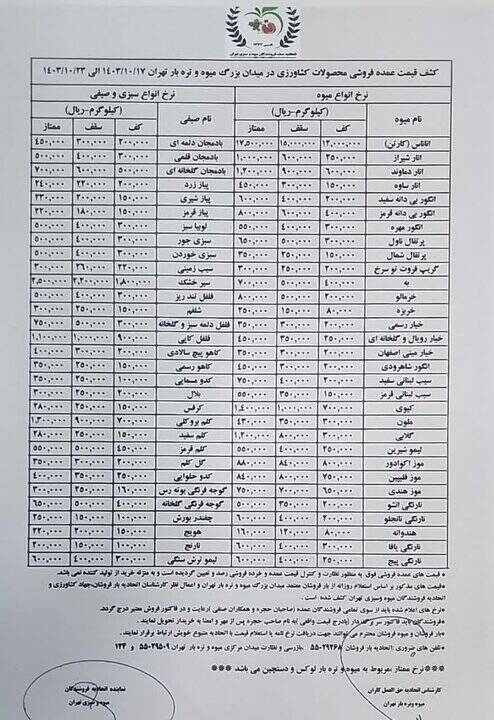 کشف قیمت عمده فروشی محصولات کشاورزی در میدان بزرگ میوه و تره بار تهران ۱۴۰۳/۱۰/۱۷ الی ۱۴۰۳/۱۰/۲۳
نرخ انواع میوه نرخ انواع سبزی و صیفی
نام میوه (کیلوگرم-ریال) نام صیفی (کیلوگرم-ریال)
کف سقف ممتاز کف سقف ممتاز
آناناس (کارتن) ۱۲,۰۰۰,۰۰۰ ۱۵,۰۰۰,۰۰۰ ۱۷,۵۰۰,۰۰۰ بادمجان دلمه ای ۲۰۰,۰۰۰ ۳۰۰,۰۰۰ ۴۵۰,۰۰۰
انار شیراز ۲۵۰,۰۰۰ ۶۰۰,۰۰۰ ۱,۰۰۰,۰۰۰ بادمجان قلمی ۳۰۰,۰۰۰ ۴۰۰,۰۰۰ ۵۰۰,۰۰۰
انار دماوند ۶۰۰,۰۰۰ ۹۰۰,۰۰۰ ۱,۲۰۰,۰۰۰ بادمجان گلخانه ای ۵۰۰,۰۰۰ ۶۰۰,۰۰۰ ۷۰۰,۰۰۰
انار ساوه ۱۵۰,۰۰۰ ۳۰۰,۰۰۰ ۴۵۰,۰۰۰ پیاز زرد ۲۰۰,۰۰۰ ۲۲۰,۰۰۰ ۲۴۰,۰۰۰
انگور بی دانه سفید ۲۰۰,۰۰۰ ۴۰۰,۰۰۰ ۶۰۰,۰۰۰ پیاز شیری ۱۵۰,۰۰۰ ۲۰۰,۰۰۰ ۲۳۰,۰۰۰
انگور بی دانه قرمز ۴۰۰,۰۰۰ ۶۰۰,۰۰۰ ۸۰۰,۰۰۰ پیاز قرمز ۱۵۰,۰۰۰ ۱۸۰,۰۰۰ ۲۲۰,۰۰۰
انگور مهره ۲۰۰,۰۰۰ ۴۰۰,۰۰۰ ۵۵۰,۰۰۰ لوبیا سبز ۳۰۰,۰۰۰ ۴۰۰,۰۰۰ ۵۰۰,۰۰۰
پرتقال ناول ۲۵۰,۰۰۰ ۵۰۰,۰۰۰ ۶۵۰,۰۰۰ سبزی جور ۳۰۰,۰۰۰ ۴۰۰,۰۰۰ ۵۰۰,۰۰۰
پرتقال شمال ۱۵۰,۰۰۰ ۲۵۰,۰۰۰ ۳۵۰,۰۰۰ سبزی خوردن ۳۰۰,۰۰۰ ۴۰۰,۰۰۰ ۵۰۰,۰۰۰
گریپ فروت تو سرخ ۲۰۰,۰۰۰ ۲۵۰,۰۰۰ ۳۰۰,۰۰۰ سیب زمینی ۲۲۰,۰۰۰ ۲۶۰,۰۰۰ ۳۰۰,۰۰۰
به ۴۰۰,۰۰۰ ۵۰۰,۰۰۰ ۷۰۰,۰۰۰ سیر خشک ۱,۸۰۰,۰۰۰ ۲,۲۰۰,۰۰۰ ۲,۵۰۰,۰۰۰
خرمالو ۲۰۰,۰۰۰ ۵۰۰,۰۰۰ ۸۰۰,۰۰۰ فلفل تند ریز ۳۰۰,۰۰۰ ۴۰۰,۰۰۰ ۵۰۰,۰۰۰
خربزه ۸۰,۰۰۰ ۱۵۰,۰۰۰ ۲۵۰,۰۰۰ شلغم ۱۵۰,۰۰۰ ۲۵۰,۰۰۰ ۳۰۰,۰۰۰
خیار رسمی ۲۰۰,۰۰۰ ۳۰۰,۰۰۰ ۳۵۰,۰۰۰ فلفل دلمه سبز و گلخانه ۳۰۰,۰۰۰ ۵۰۰,۰۰۰ ۷۵۰,۰۰۰
خیار رویال و گلخانه ای ۲۵۰,۰۰۰ ۳۵۰,۰۰۰ ۴۵۰,۰۰۰ فلفل کاپی ۹۰۰,۰۰۰ ۱,۰۰۰,۰۰۰ ۱,۱۰۰,۰۰۰
خیار مینی اصفهان ۲۵۰,۰۰۰ ۳۵۰,۰۰۰ ۴۰۰,۰۰۰ کاهو پیچ سالادی ۲۰۰,۰۰۰ ۳۰۰,۰۰۰ ۴۰۰,۰۰۰
انگور شاهرودی ۲۰۰,۰۰۰ ۳۵۰,۰۰۰ ۴۵۰,۰۰۰ کاهو رسمی ۱۵۰,۰۰۰ ۲۵۰,۰۰۰ ۳۵۰,۰۰۰
سیب لبنانی سفید ۲۰۰,۰۰۰ ۴۰۰,۰۰۰ ۷۵۰,۰۰۰ کدو مسمایی ۱۰۰,۰۰۰ ۲۵۰,۰۰۰ ۳۵۰,۰۰۰
سیب لبنانی قرمز ۱۵۰,۰۰۰ ۳۵۰,۰۰۰ ۵۵۰,۰۰۰ بلال ۲۰۰,۰۰۰ ۲۵۰,۰۰۰ ۳۰۰,۰۰۰
کیوی ۷۰۰,۰۰۰ ۱,۰۰۰,۰۰۰ ۱,۴۰۰,۰۰۰ کرفس ۱۵۰,۰۰۰ ۲۵۰,۰۰۰ ۲۸۰,۰۰۰
ملون ۲۰۰,۰۰۰ ۳۵۰,۰۰۰ ۴۳۰,۰۰۰ کلم بروکلی ۷۰۰,۰۰۰ ۹۰۰,۰۰۰ ۱,۳۰۰,۰۰۰
گلابی ۳۰۰,۰۰۰ ۸۰۰,۰۰۰ ۱,۲۰۰,۰۰۰ کلم سفید ۱۵۰,۰۰۰ ۲۵۰,۰۰۰ ۲۸۰,۰۰۰
لیمو شیرین ۲۰۰,۰۰۰ ۴۰۰,۰۰۰ ۵۵۰,۰۰۰ کلم قرمز ۴۰۰,۰۰۰ ۵۰۰,۰۰۰ ۵۵۰,۰۰۰
موز اکوادور ۸۰۰,۰۰۰ ۸۴۰,۰۰۰ ۸۸۰,۰۰۰ گل کلم ۲۰۰,۰۰۰ ۳۰۰,۰۰۰ ۳۵۰,۰۰۰
موز فلیپین ۷۵۰,۰۰۰ ۸۰۰,۰۰۰ ۸۴۰,۰۰۰ کدو حلوایی ۲۵۰,۰۰۰ ۳۵۰,۰۰۰ ۴۰۰,۰۰۰
موز هندی ۶۵۰,۰۰۰ ۷۰۰,۰۰۰ ۷۵۰,۰۰۰ گوجه فرنگی بوته رس ۱۶۰,۰۰۰ ۲۵۰,۰۰۰ ۳۰۰,۰۰۰
نارنگی انشو ۲۰۰,۰۰۰ ۴۰۰,۰۰۰ ۵۰۰,۰۰۰ گوجه فرنگی گلخانه ۴۰۰,۰۰۰ ۵۰۰,۰۰۰ ۶۵۰,۰۰۰
نارنگی تانجلو ۲۰۰,۰۰۰ ۴۰۰,۰۰۰ ۶۰۰,۰۰۰ چغندر پورش ۱۰۰,۰۰۰ ۲۰۰,۰۰۰ ۲۵۰,۰۰۰
هندوانه ۸۰,۰۰۰ ۱۲۰,۰۰۰ ۱۶۰,۰۰۰ هویج ۱۵۰,۰۰۰ ۲۰۰,۰۰۰ ۲۲۰,۰۰۰
نارنگی یافا ۳۰۰,۰۰۰ ۴۰۰,۰۰۰ ۶۰۰,۰۰۰ نارنج ۱۰۰,۰۰۰ ۱۵۰,۰۰۰ ۲۰۰,۰۰۰
نارنگی پیج ۲۵۰,۰۰۰ ۴۰۰,۰۰۰ ۶۰۰,۰۰۰ لیمو ترش سنگی ۳۰۰,۰۰۰ ۴۰۰,۰۰۰ ۶۰۰,۰۰۰
* قیمت های عمده فروشی فوق به منظور نظارت و کنترل قیمت عمده و خرده فروشی رصد و تعیین گردیده است و به منزله خرید از تولید کننده نمی باشد.
*قیمت های مذکور بر اساس استعلام روزانه از بار فروشان معتمد میدان بزرگ میوه و تره بار تهران و اعمال نظر کارشناسان اتحادیه بار فروشان،جهاد کشاورزی و
اتحادیه فروشندگان میوه وسبزی تهران کشف شده است.
*نرخ های اعلام شده باید از سوی تمامی فروشندگان عمده (صاحبان حجره و همکاران صنفی )رعایت و در فاکتور فروش معتبر درج گردد.
*فروشندگان باید فاکتور سر برگ دار (بادرج قیمت واقعی )به نام صاحب حجره پس از مهر و امضا به خریدار تحویل نمایند.
*بار فروشان و میوه فروشان محترم می توانند جهت دریافت نرخ نامه یا استعلام قیمت با اتحادیه متبوع خویش ارتباط برقرار نمایند.
*تلفن های ضروری :اتحادیه بار فروشان بازرسی و نظارت میدان مرکزی میوه و تره بار تهران ۵۵۰۲۹۵۰۹ و ۱۲۴
***نرخ ممتاز ،مربوط به میوه و تره بار لوکس و دستچین می باشد***
کارشناسی اتحادیه حق العمل کاران نماینده اتحادیه فروشندگان
میوه وتره بار تهران میوه و سبزی تهران